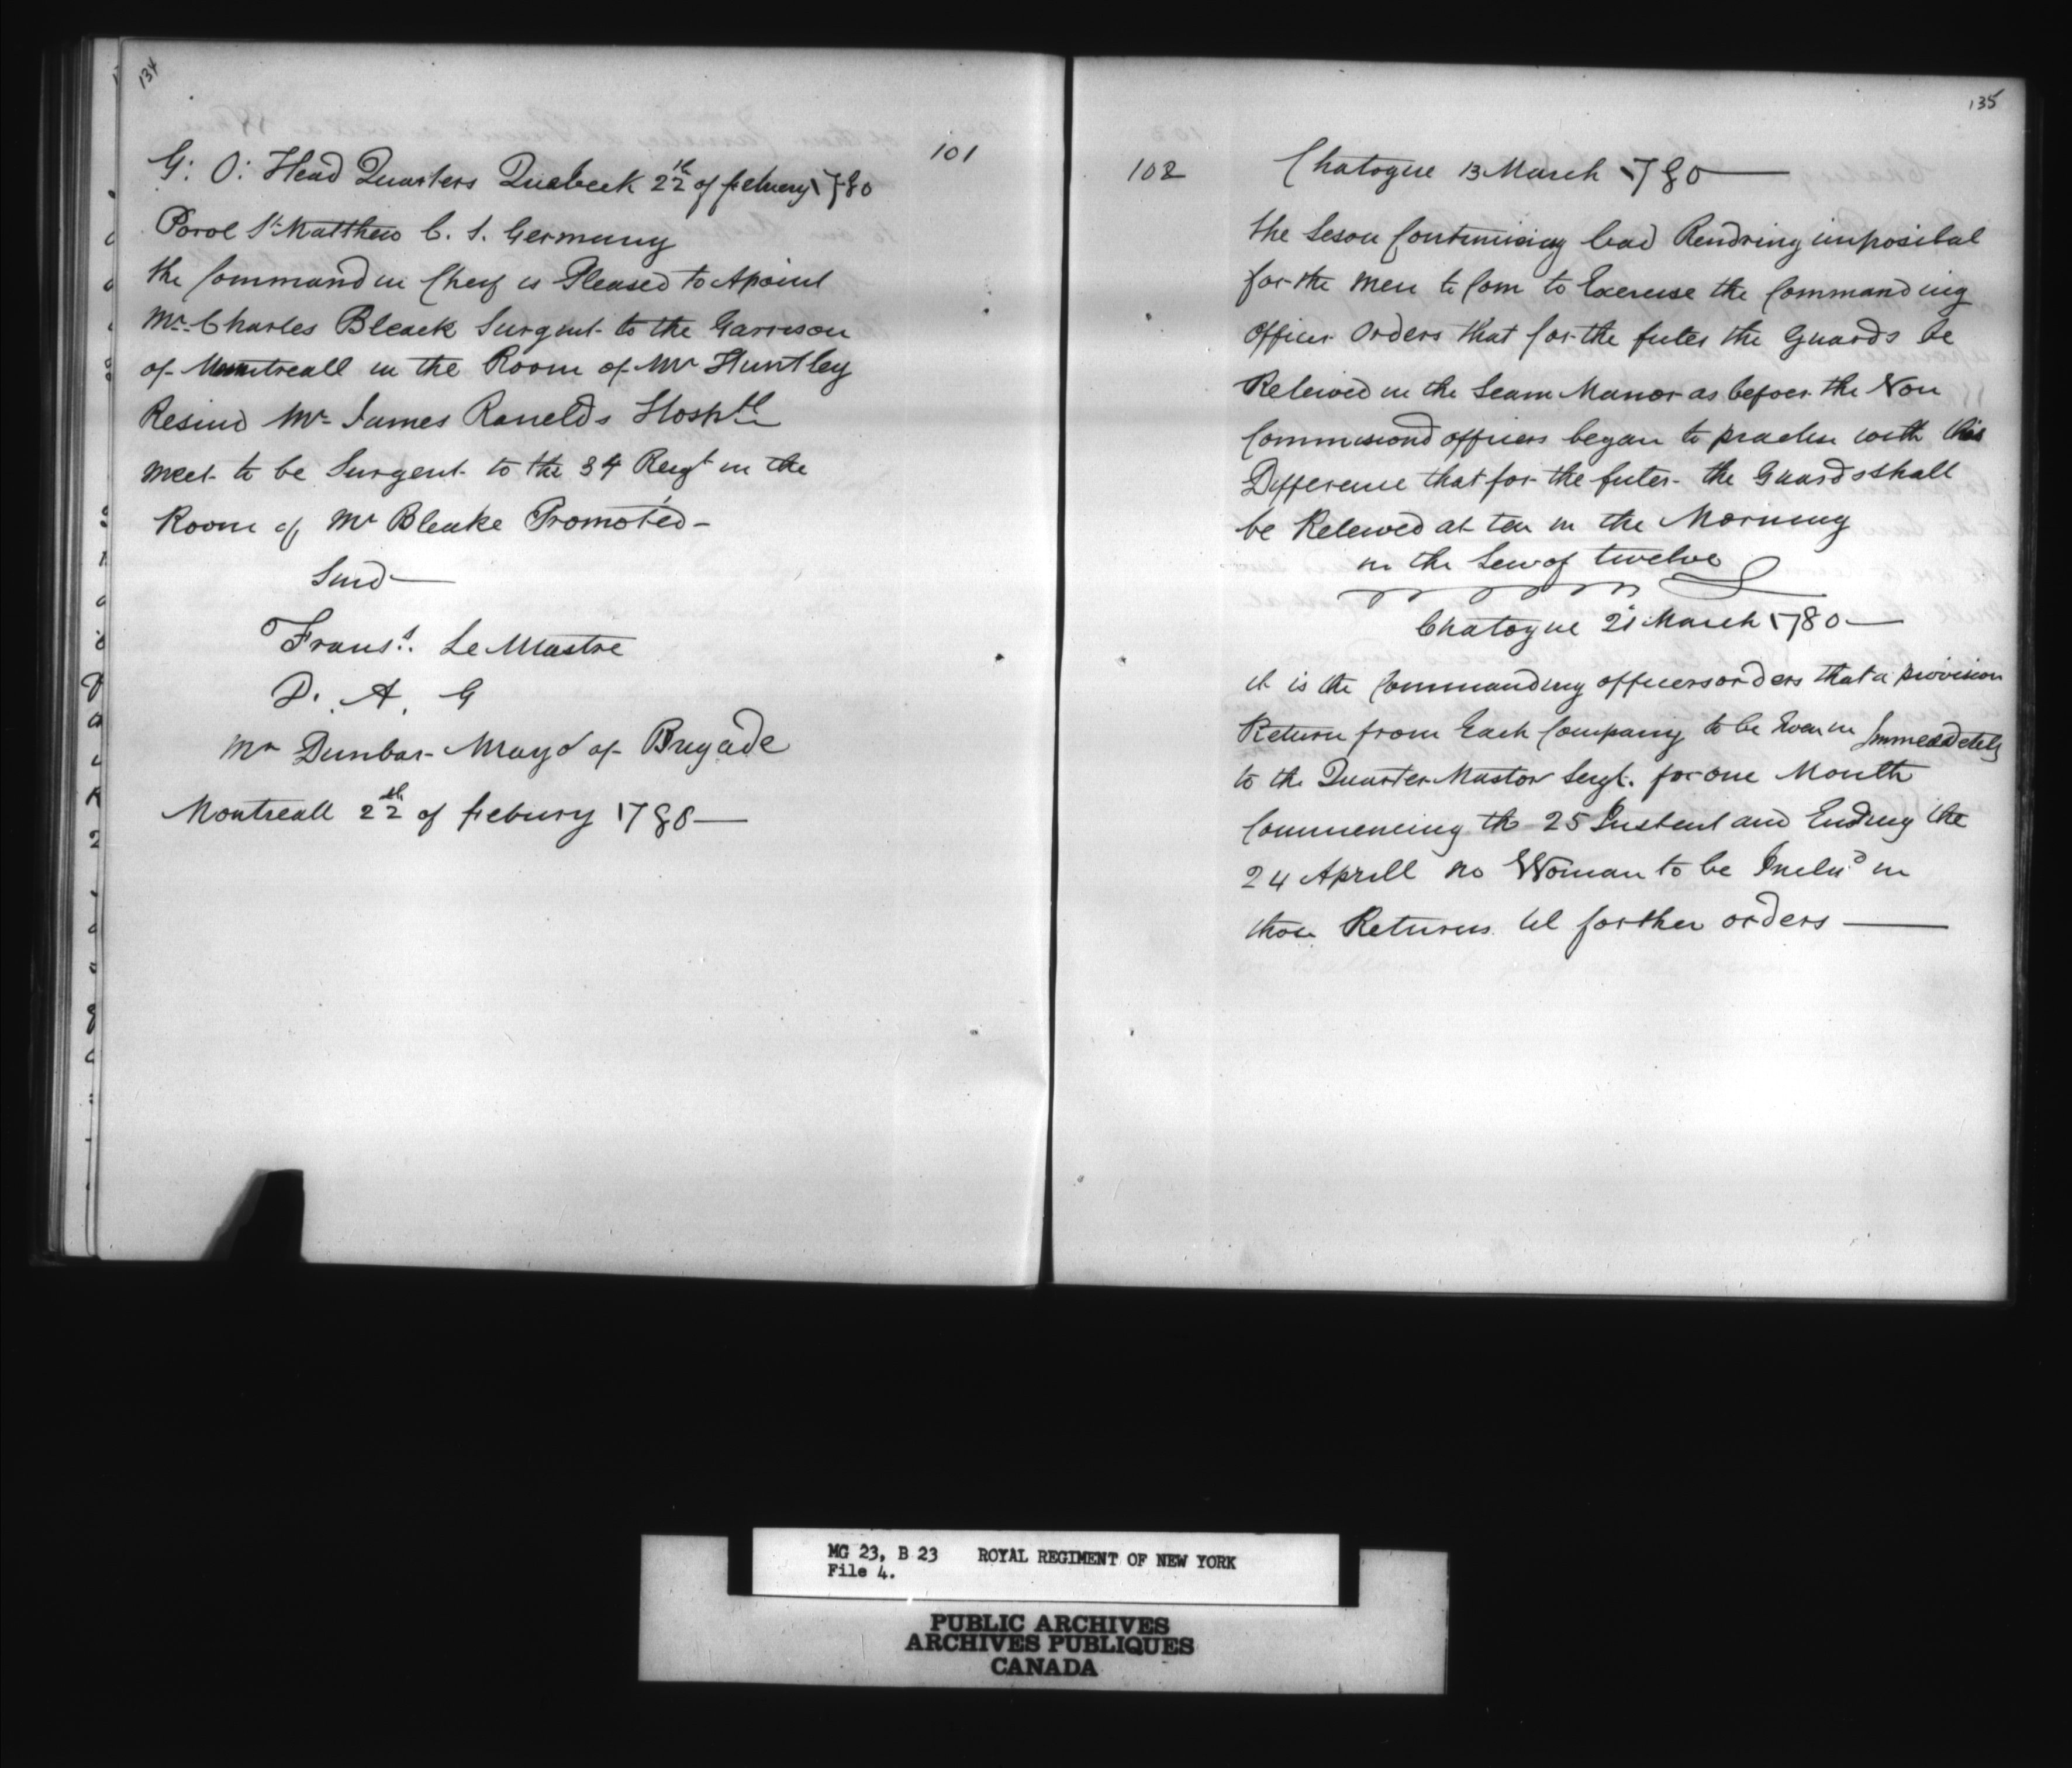 134
101
G: O: Head Quarters Quebeck 22th of febuery 1780
Parol St Matthew C. S. Germany
the Command in Cheif is Pleased to Apoint
Mr. Charles Bleack Surgent to the Garrison
of Montreall in the Room of Mr Huntley
Resind Mr James Ranelds Hosptl
meet to be Surgent to the 34 Reigt in the
Room of Mr Bleake Promoted -
Sind
Frans. Le Mastre
D. A. G
Mr Dunbar Mayor of Brigade
Montreall 22th of febury 1780
135
102
Chatogue 13 March 1780
the Seson Continuing bad Rendring imposibal
for the men to Com to Exercise the Commanding
officer Orders that for the futer the Guards be
Releived in the Seam Manor as befoer the Non
Commisiond officers began to practise with this
Difference that for the futer the Guards shall
be Releived at ten in the Morning
in the Lew of twelve
Chatogue 21 March 1780
it is the Commanding officers orders that a provision
Return from Each Company to be given in Immediately
to the Quarter Mastor Sergt. for one Month
Commencing the 25 Instent and Ending the
24 Aprill no Woman to be Includ in
thoes Returns til forther orders
MG 23, B 23 ROYAL REGIMENT OF NEW YORK
File 4.
PUBLIC ARCHIVES
ARCHIVES PUBLIQUES
CANADA